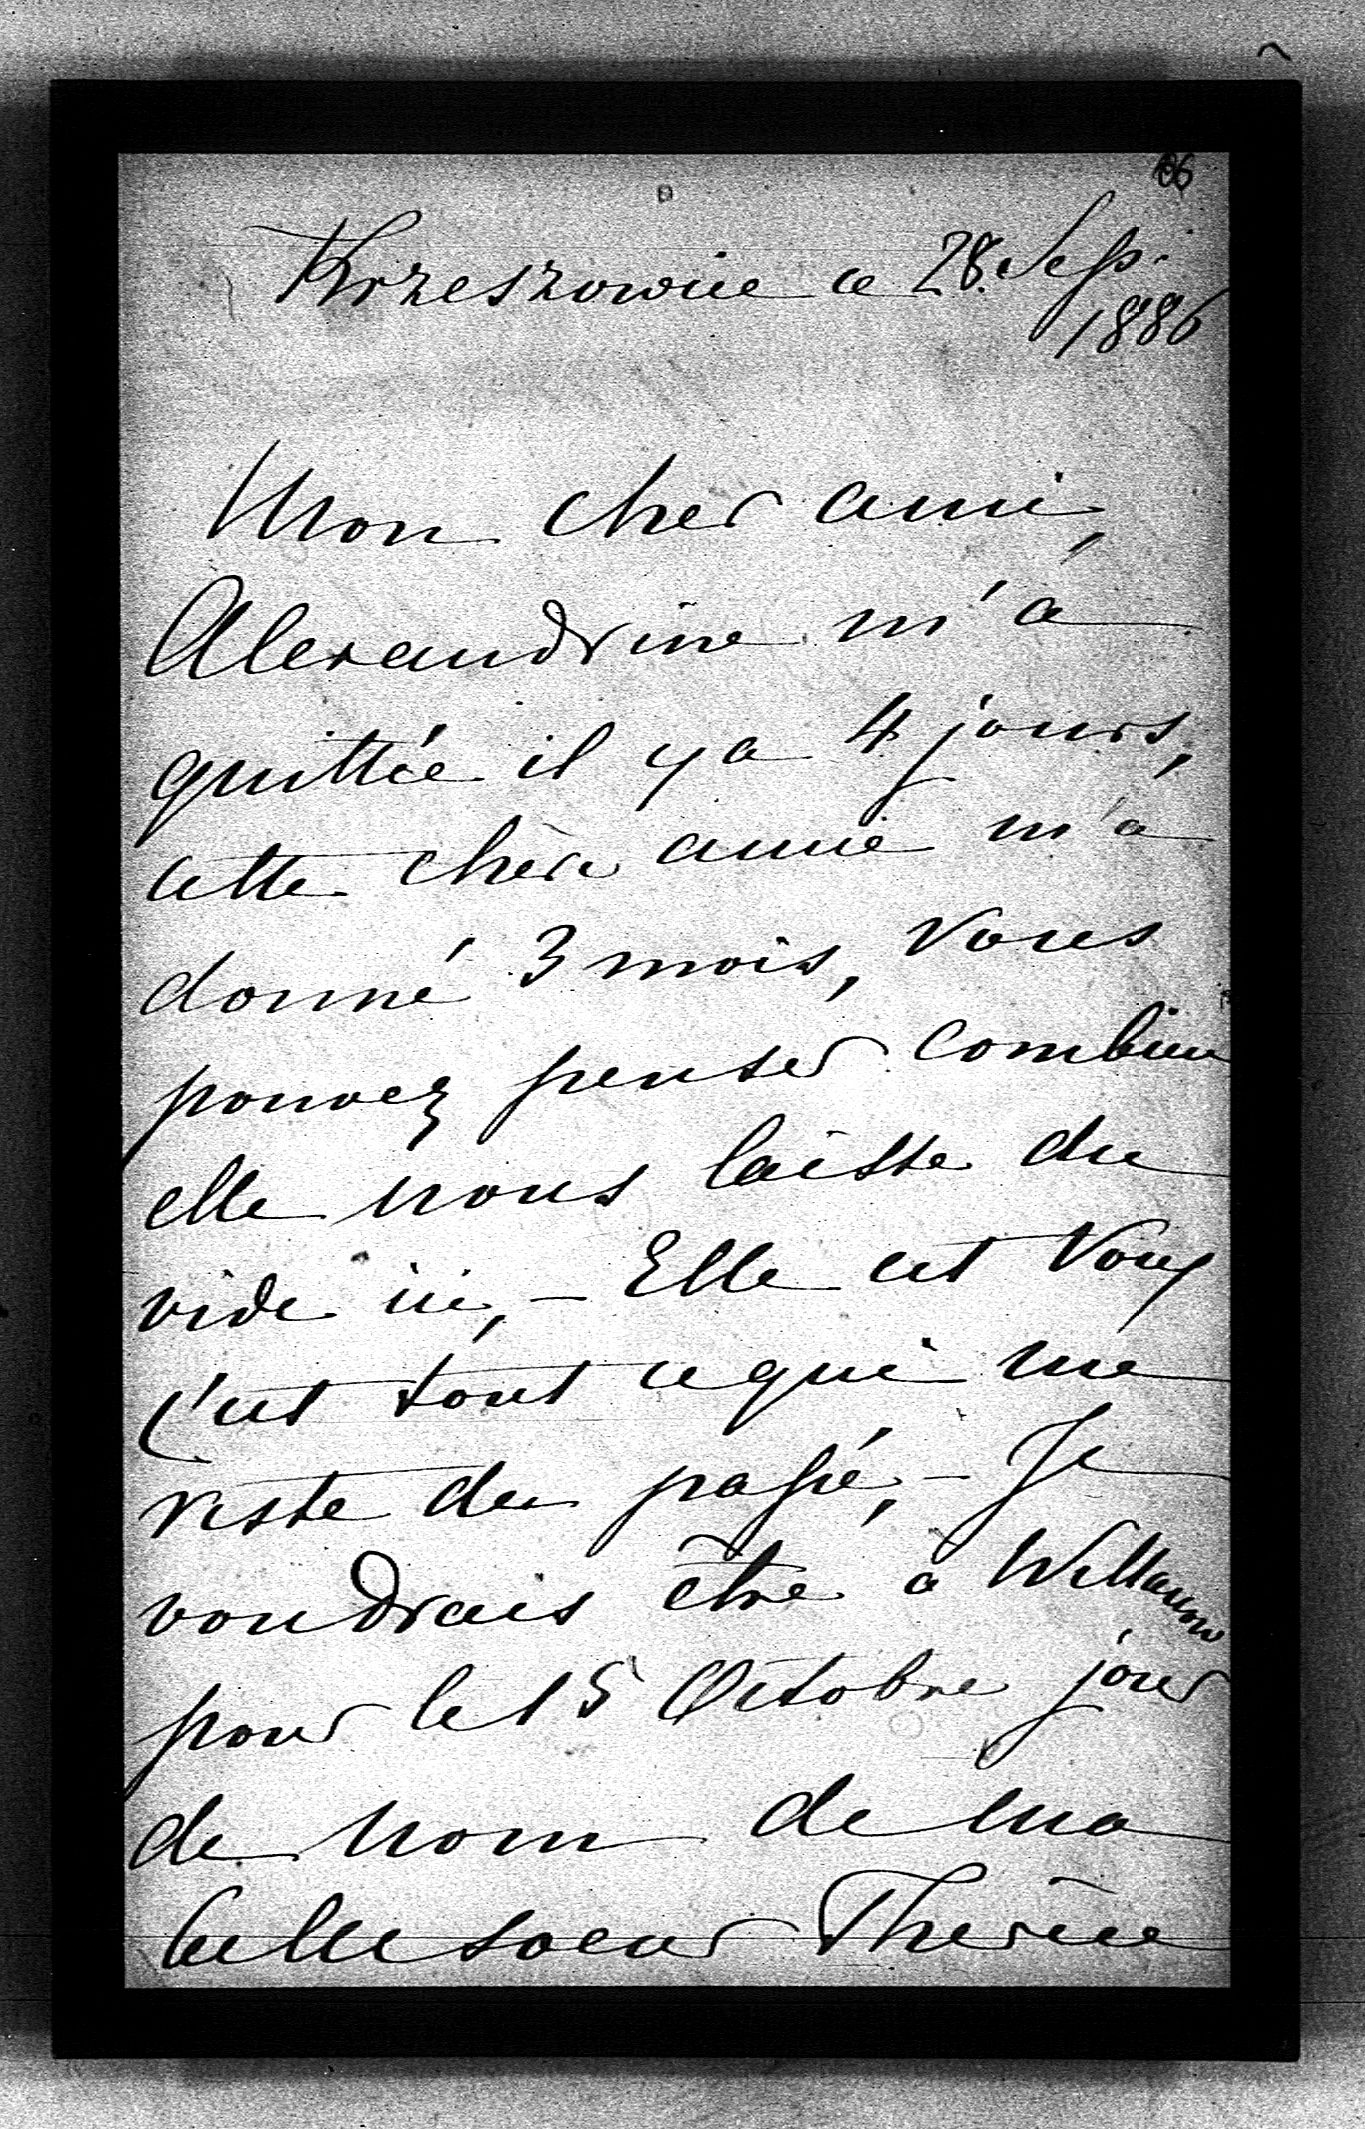 106
Krzeszowice ce 28. Sep.
1886
Mon cher ami,
Alexandrine m'a
quittée il y a 4 jours,
cette chère amie m'a
donné 3 mois, Vous
pouvez penser combien
elle nous laisse du
vide ici, – Elle et Vous
c'est tout ce qui me
reste du passé, – Je
voudrais être à Willanow
pour le 15 Octobre jour
de nom de ma
belle soeur Thérèse